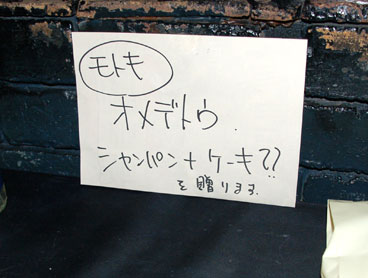 モトキ
オメデトウ.
シャンパン+ケーキ??
を贈ります.